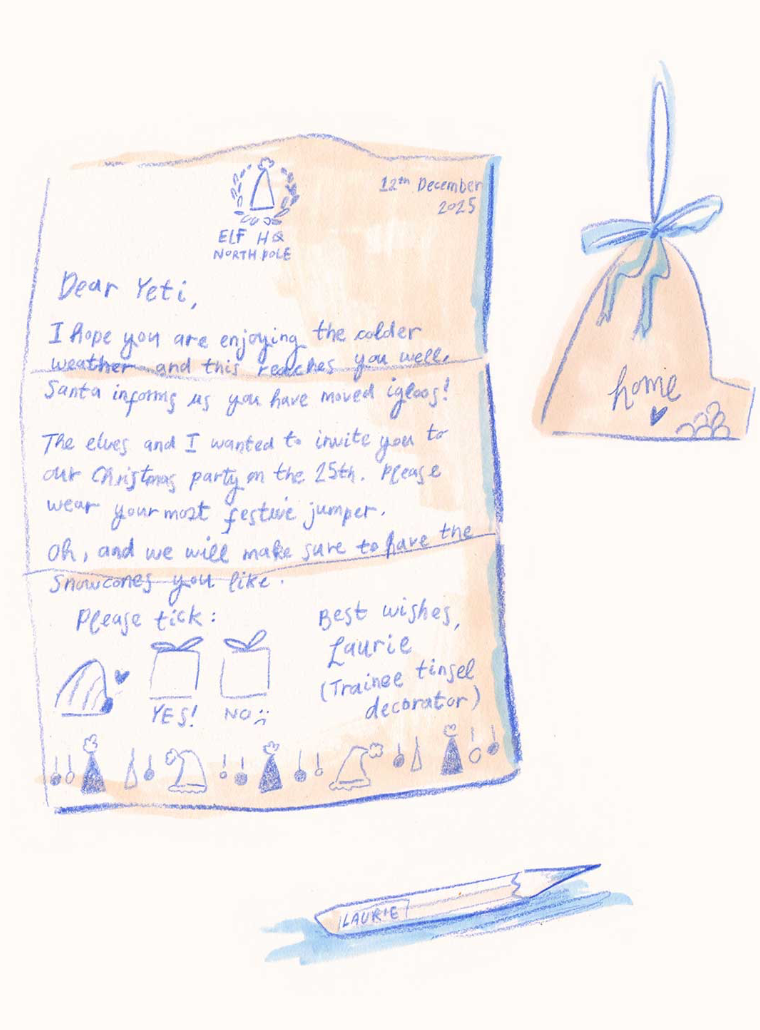 12th December
2025
ELF HQ
NORTH POLE
Dear Yeti,
I hope you are enjoying the colder
weather and this reaches you well.
Santa informs us you have moved igloos!
The elves and I wanted to invite you to
our Christmas party on the 25th. Please
wear your most festive jumper.
Oh, and we will make sure to have the
Snowcones you like.
Please tick:
YES!
NO :(
Best wishes,
Laurie
(Trainee tinsel
decorator)
home
LAURIE